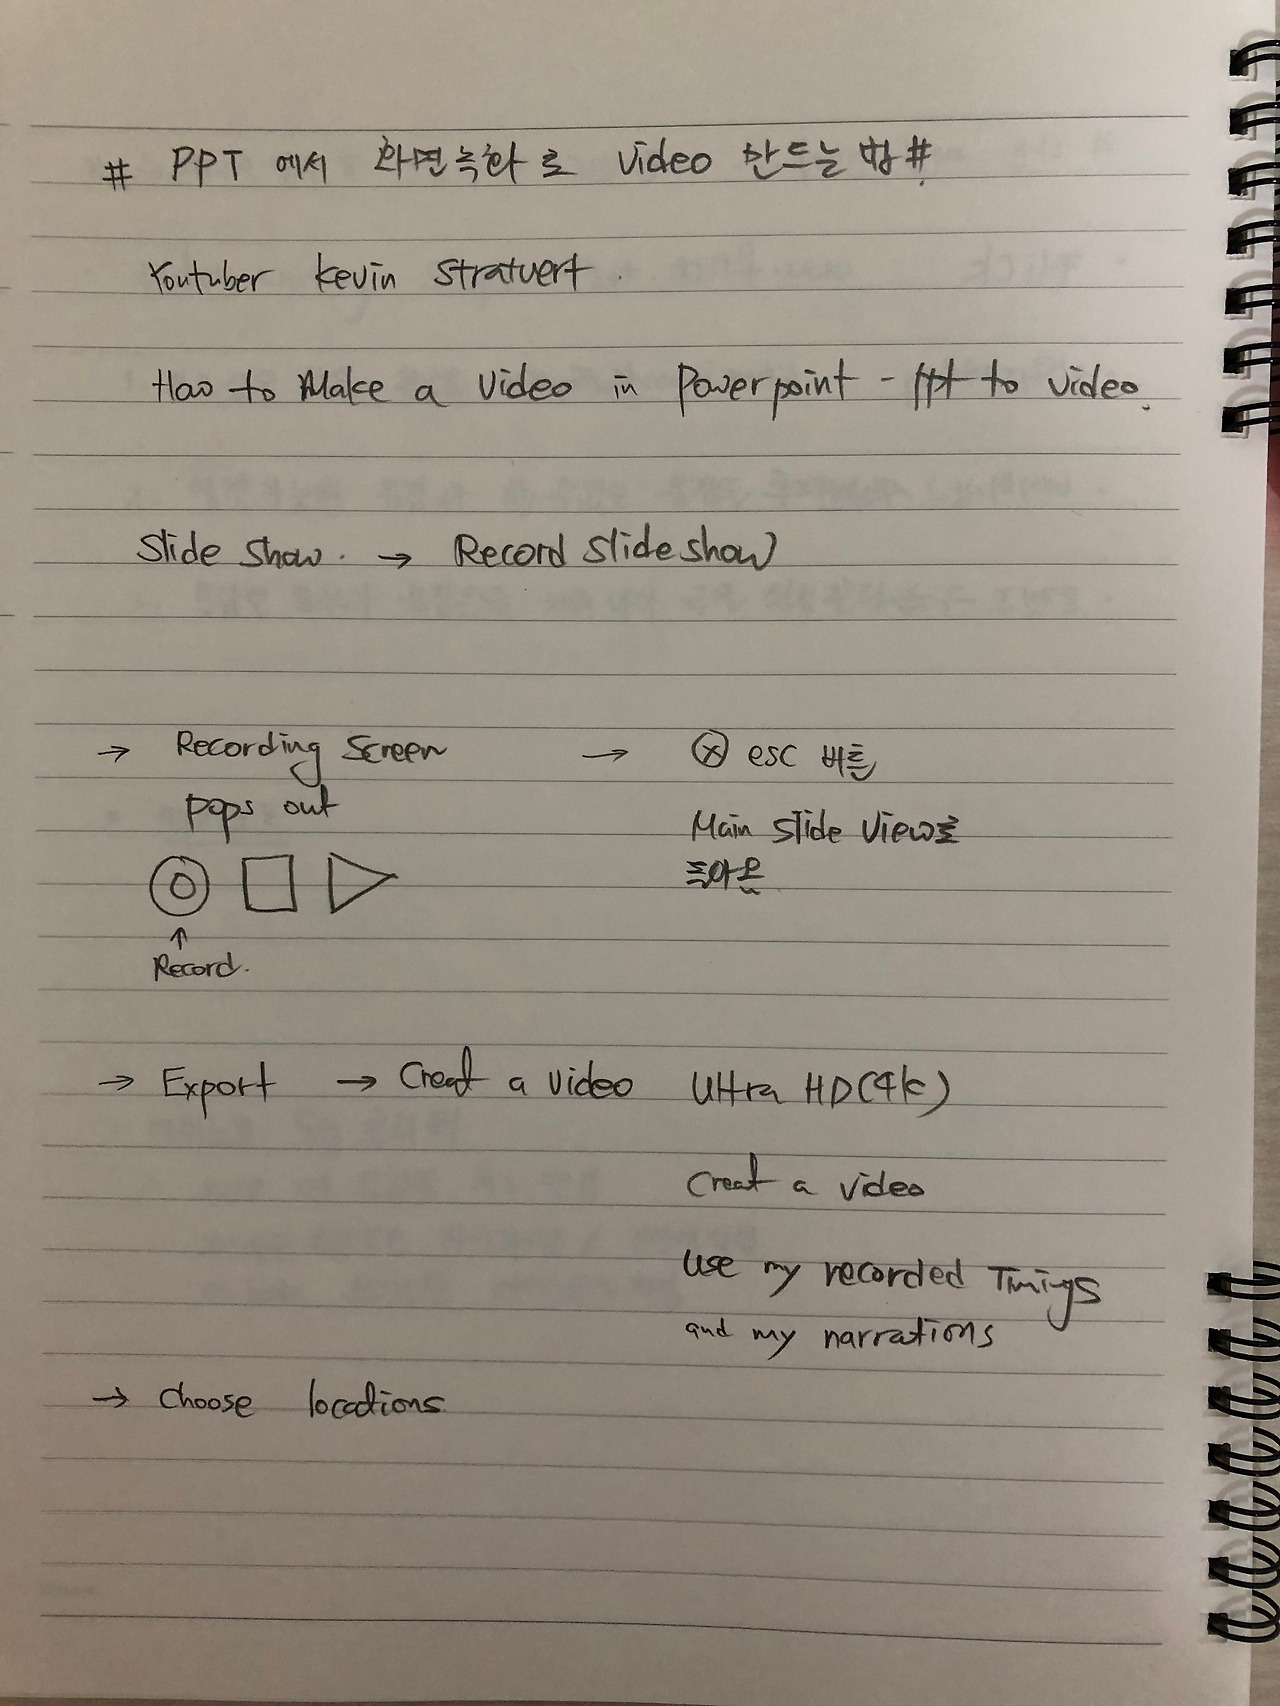 # PPT 에서 화면녹화로 video 만드는 법 #
Youtuber kevin stratvert.
How to Make a video in Powerpoint - ppt to video.
Slide Show. → Record slide show
→ Recording Screen → ⓧ esc 버튼
pops out
Main slide view로
돌아온
↑
Record.
→ Export → Creat a video Ultra HD(4k)
Creat a video
use my recorded Timings
and my narrations
→ choose locations